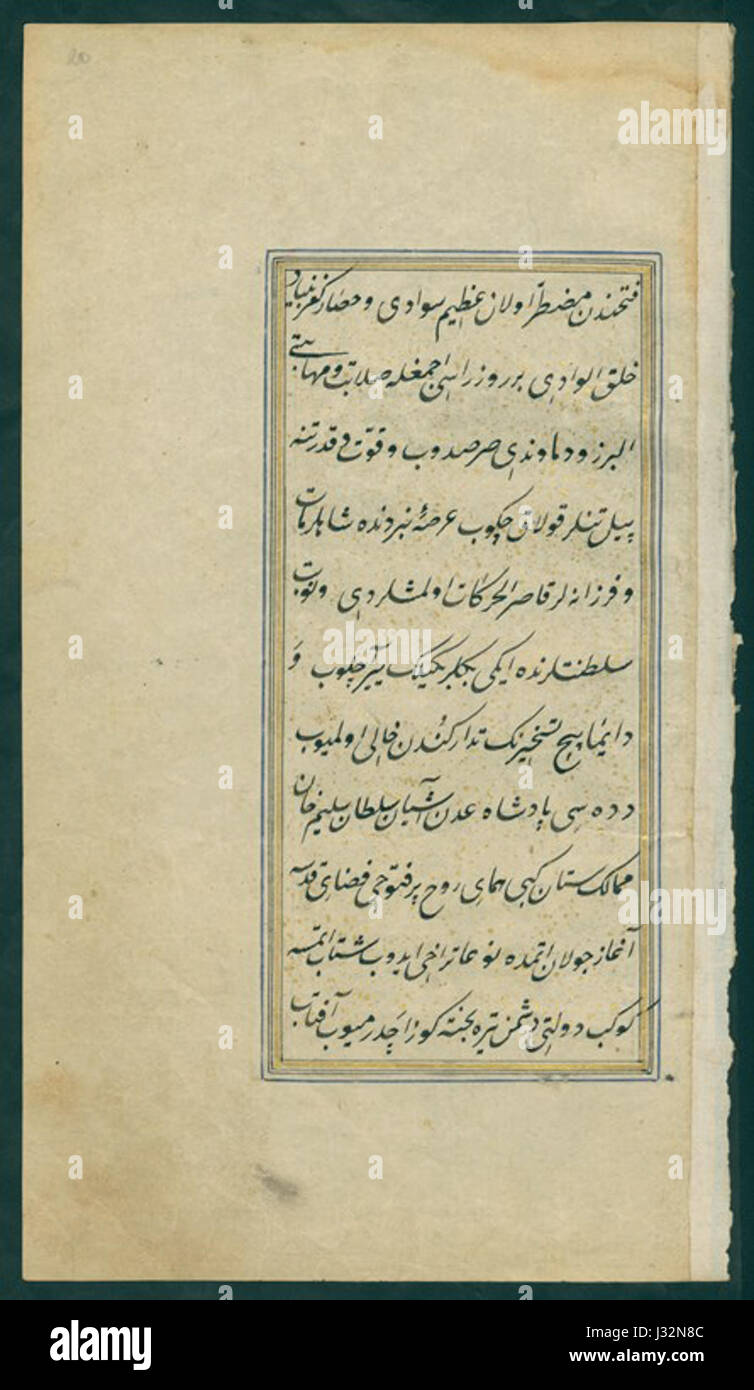 20
فتحندن مضطر اولان عظیم سوادی و حصار
خلق الوادی بر روز صلابت و مهابتی
البرز و دماوندی صرصدوب و قوّت و قدرتنه
پیل تنلر قولاق چکوب عرصهٔ نبردنده شاهلر مات
و فرزانه لر قاصر الحرکات اولمشلردی و نوبت
سلطنتلرنده ایکی بکلربکیلک یر چکوب و
دایما تسخیرنک تدارکندن خالی اولمیوب
دده سی پادشاه عدن آشیان سلطان سلیم خان
ممالک ستان کبی همای روح پر فتوحی فضای قدسه
آغاز جولان اتمده نوعا تراخی ایدوب شتاب اتمسه
کوکب دولتی دشمن تیره بخته کوز آچدرمیوب آفتاب
alamy
alamy
alamy
Image ID: J32N8C
www.alamy.com